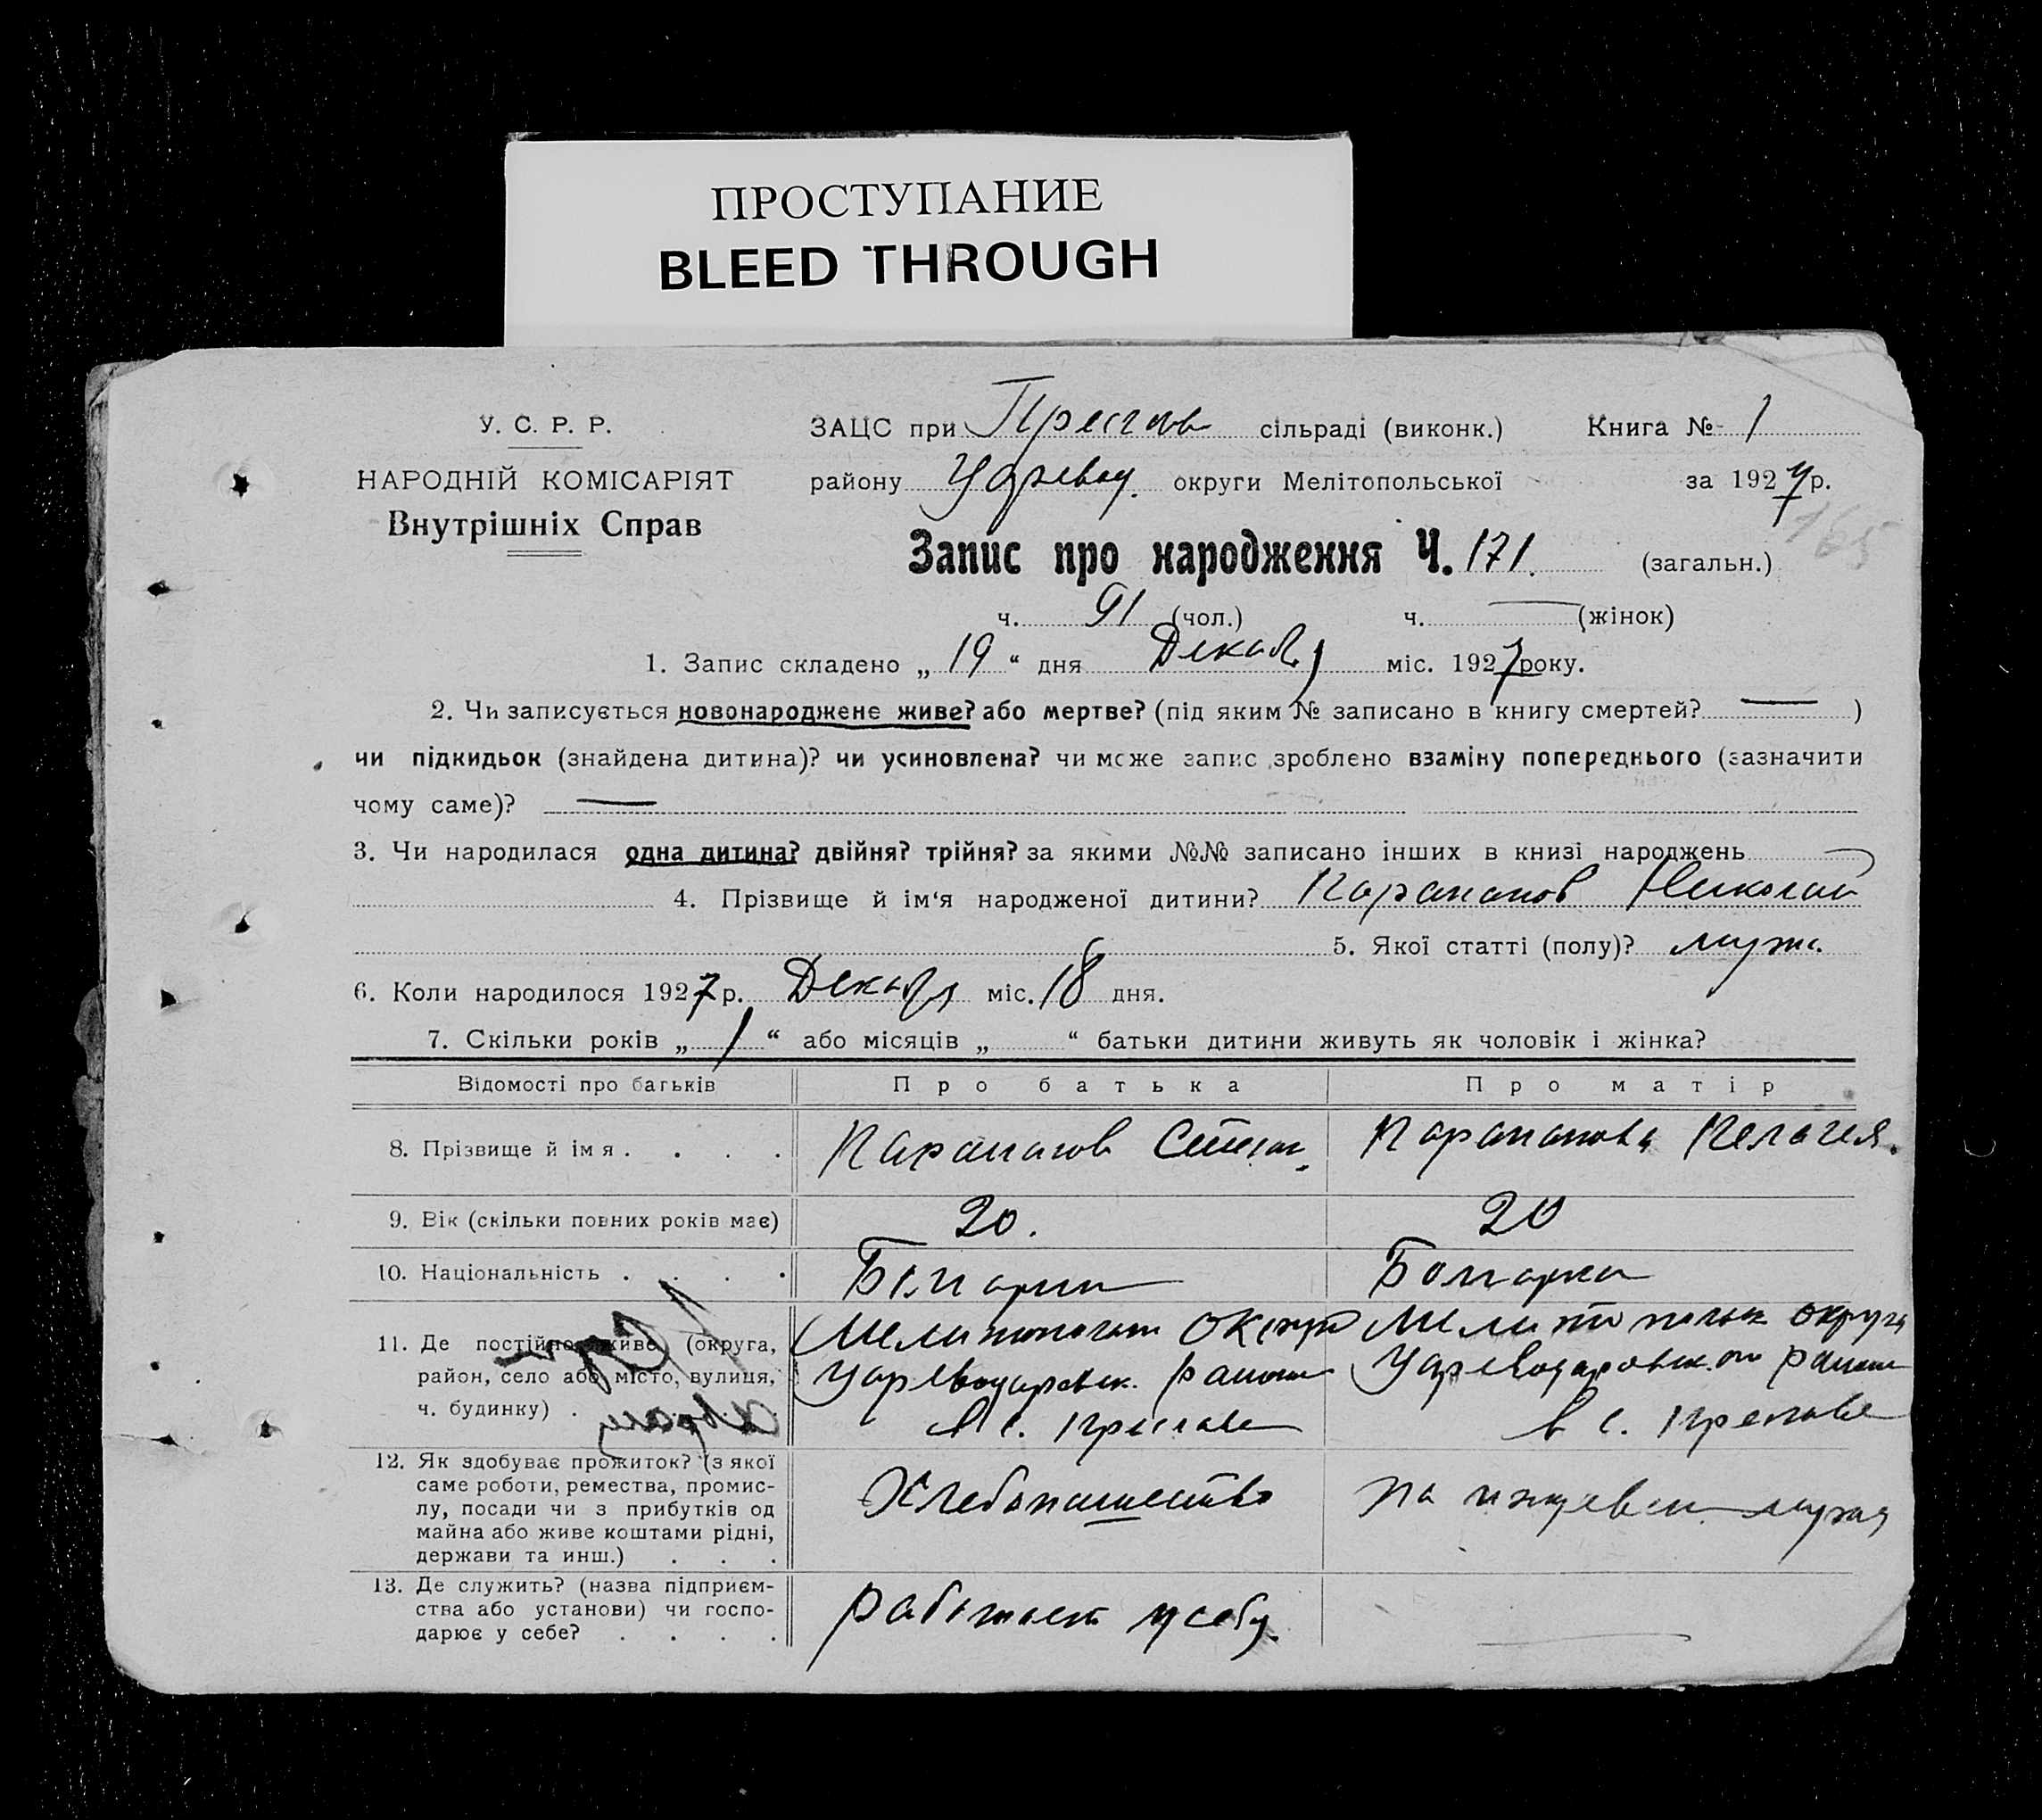 ПРОСТУПАНИЕ
BLEED THROUGH
У. С. Р. Р.
НАРОДНІЙ КОМІСАРІЯТ
Внутрішніх Справ
ЗАЦС при Преслав сільраді (виконк.) Книга № 1
району Царевод. округи Мелітопольської за 1927 р.
165
Запис про народження Ч. 171. (загальн.)
ч. 91 (чол.) ч. — (жінок)
1. Запис складено „ 19 “ дня Декабр міс. 1927 року.
2. Чи записується новонароджене живе? або мертве? (під яким № записано в книгу смертей? — )
чи підкидьок (знайдена дитина)? чи усиновлена? чи може запис зроблено взаміну попереднього (зазначити
чому саме)? —
3. Чи народилася одна дитина? двійня? трійня? за якими №№ записано інших в книзі народжень
4. Прізвище й ім‘я народженої дитини? Карапанов Николай
5. Якої статті (полу)? муж.
6. Коли народилося 1927 р. Декабр міс. 18 дня.
7. Скільки років „ 1 “ або місяців „ “ батьки дитини живуть як чоловік і жінка?
Відомості про батьків Про батька Про матір
8. Прізвище й ім я . . . . Карапанов Степан. Карапанова Пелагея.
9. Вік (скільки повних років має) 20. 20
10. Національність . . . . Болгарин Болгарка
11. Де постійно живе (округа,
район, село або місто, вулиця,
ч. будинку) .
Мелитопольск округа
Цареводаровск. района
в с. Преславе
Мелитопольск округа
Цареводаровского района
в с. Преславе
12. Як здобуває прожиток? (з якої
саме роботи, ремества, промис-
лу, посади чи з прибутків од
майна або живе коштами рідні,
держави та инш.) . . .
Хлебопашество
на иждевен. мужа
13. Де служить? (назва підприєм-
ства або установи) чи госпо-
дарює у себе? . . . .
работает у себя.
—